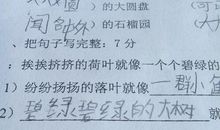 )的大圆盘
(闹钟外)的石榴园
、把句子写完整:7分
:挨挨挤挤的荷叶就像一个个碧绿的
1)纷纷扬扬的落叶就像 一群小鱼
2)碧绿碧绿的大树 就